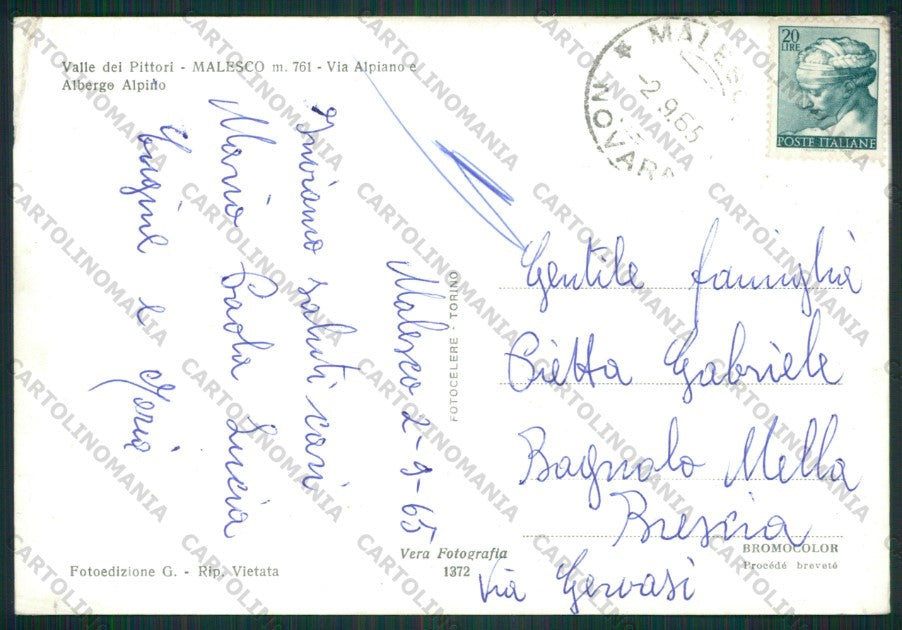 Valle dei Pittori - MALESCO m. 761 - Via Alpiano e
Albergo Alpino
Malesco 2-9-65
Inviamo saluti cari
Mario Paola Lucia
e Maria
MALESCO
2.9.65
NOVARA
20
LIRE
POSTE ITALIANE
Gentile famiglia
Pietta Gabriele
Bagnolo Mella
Brescia
Via Gervasi
FOTOCELERE · TORINO
Vera Fotografia
1372
BROMOCOLOR
Procédé breveté
Fotoedizione G. - Rip. Vietata
CARTOLINOMANIA